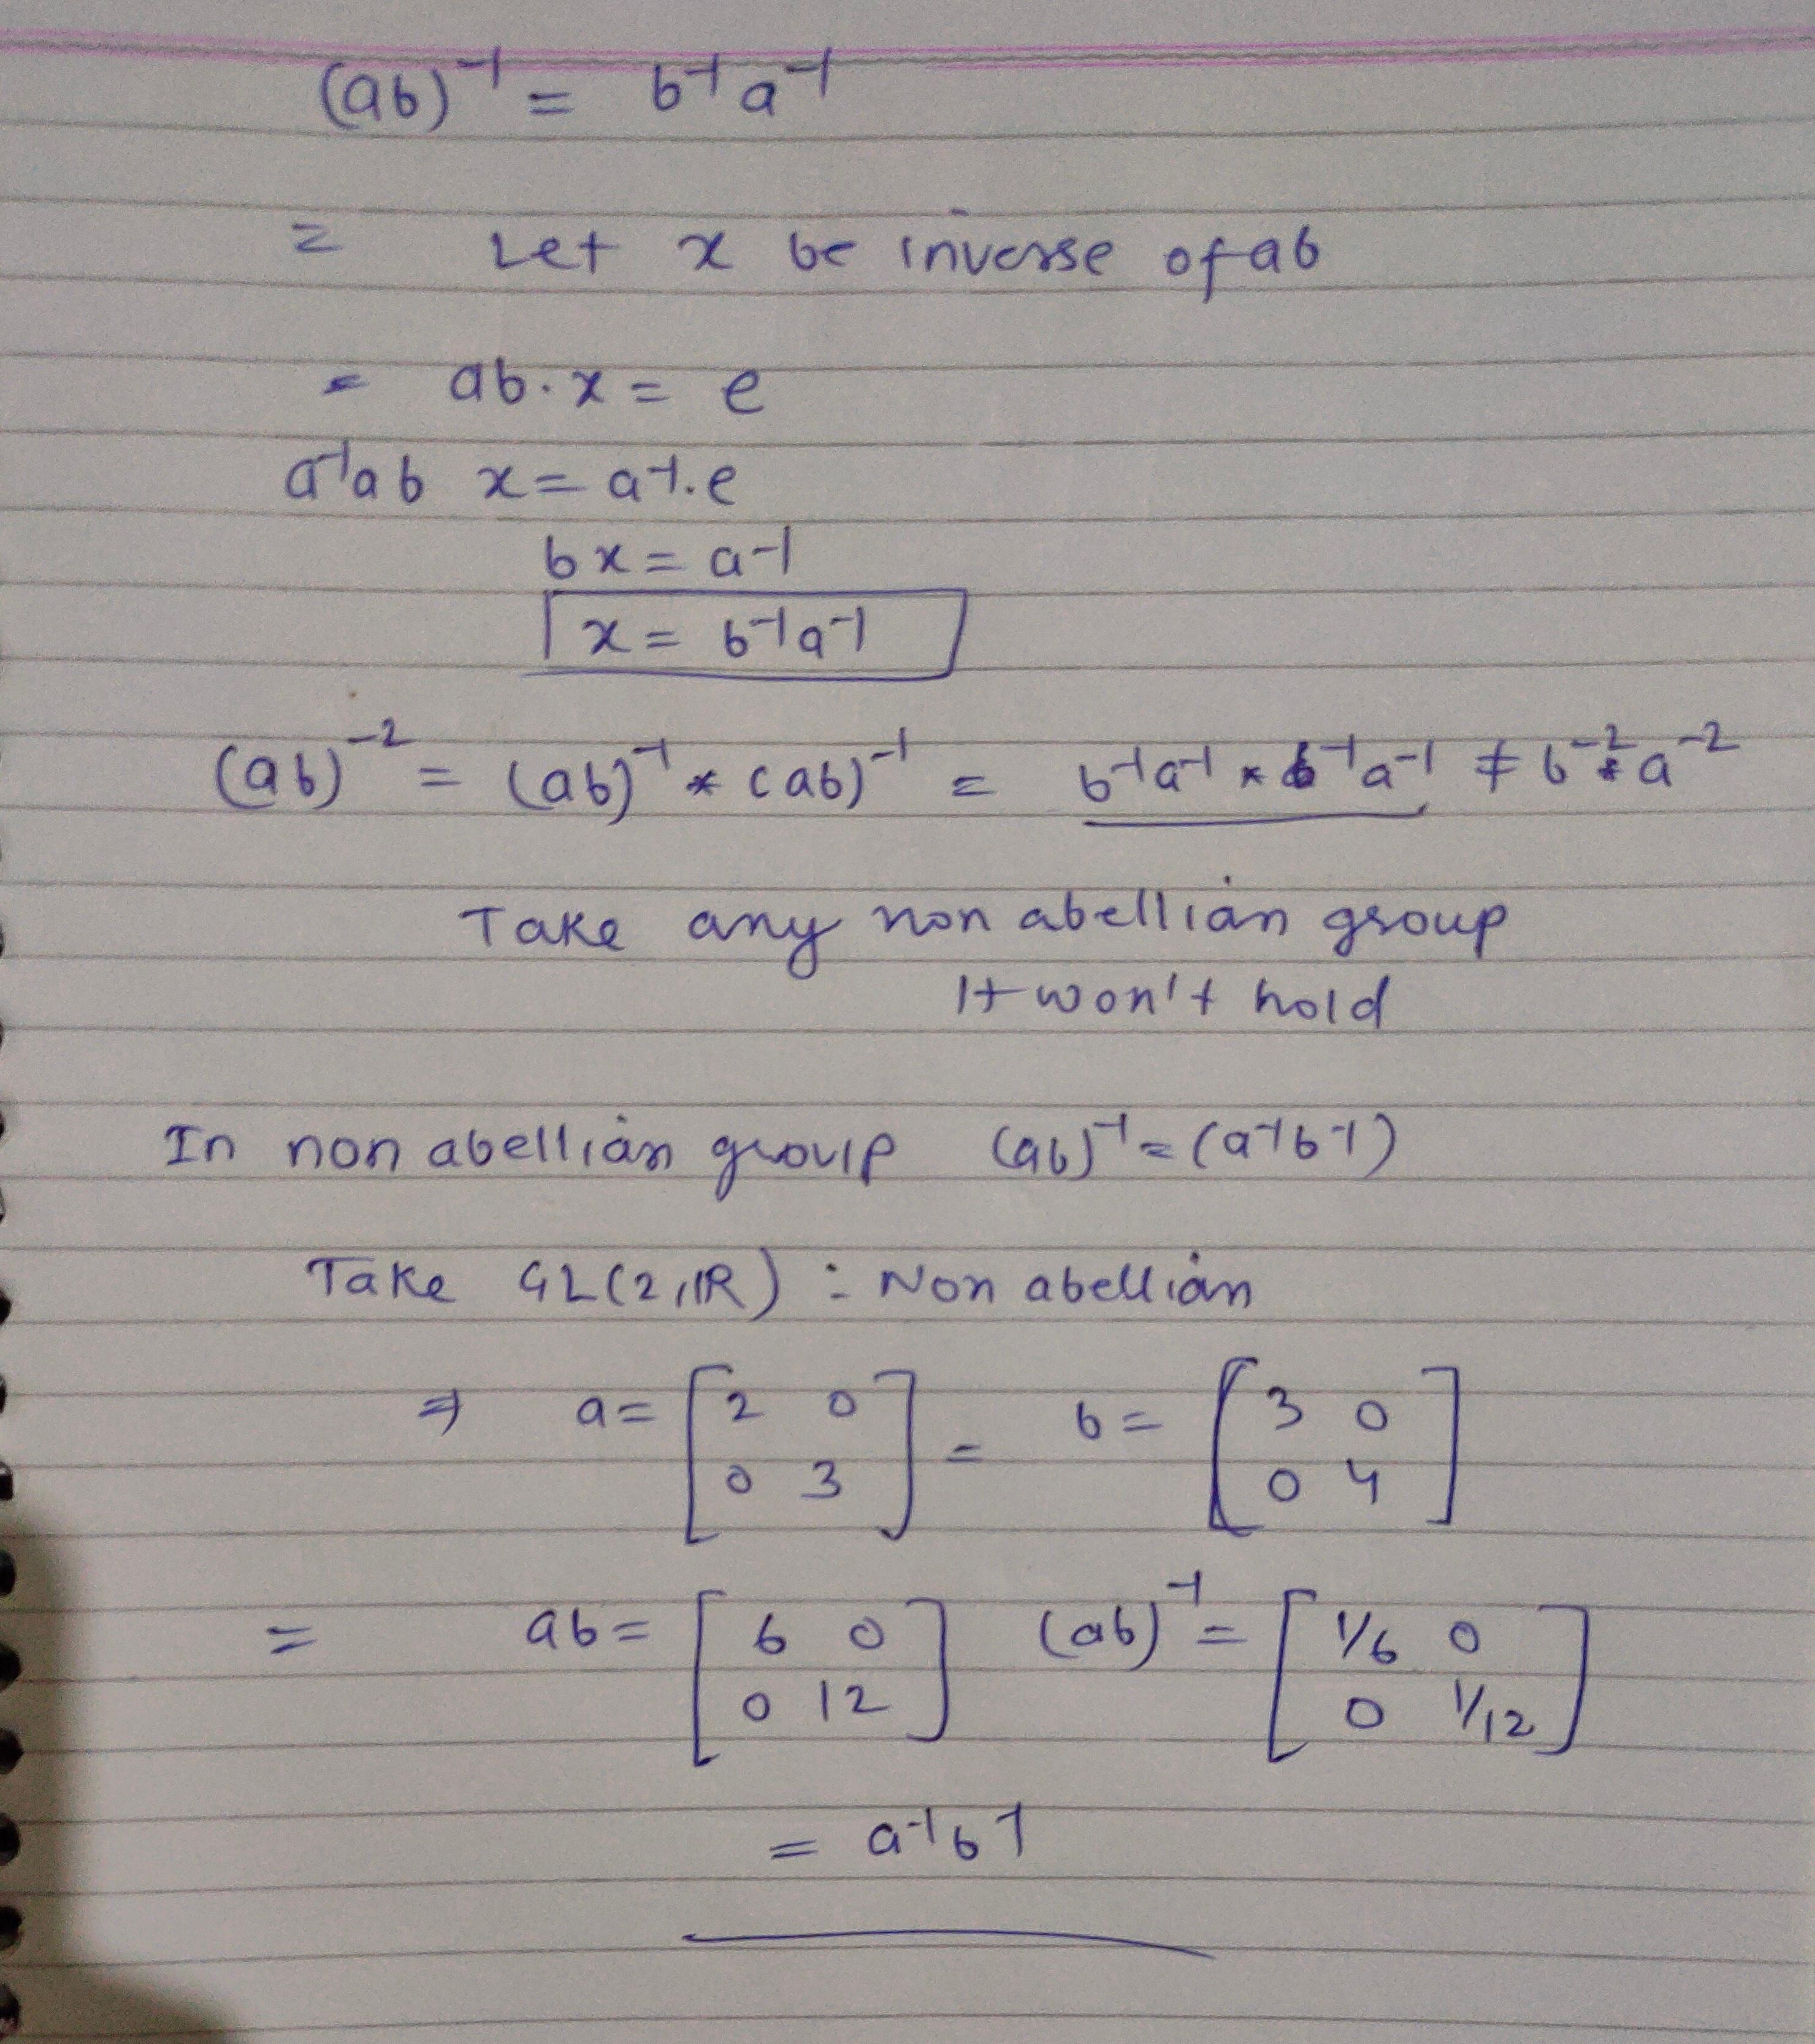 (ab)⁻¹ = b⁻¹a⁻¹
= Let x be inverse of ab
= ab.x = e
a⁻¹ab x = a⁻¹.e
bx = a⁻¹
x = b⁻¹a⁻¹
(ab)⁻² = (ab)⁻¹ * (ab)⁻¹ = b⁻¹a⁻¹ * b⁻¹a⁻¹ ≠ b⁻² * a⁻²
Take any non abellian group
It won't hold
In non abellian group (ab)⁻¹ = (a⁻¹b⁻¹)
Take GL(2,ℝ) : Non abellian
⇒ a = [2 0 = b = [3 0
0 3] 0 4]
= ab = [6 0 (ab)⁻¹ = [1/6 0
0 12] 0 1/12]
= a⁻¹b⁻¹